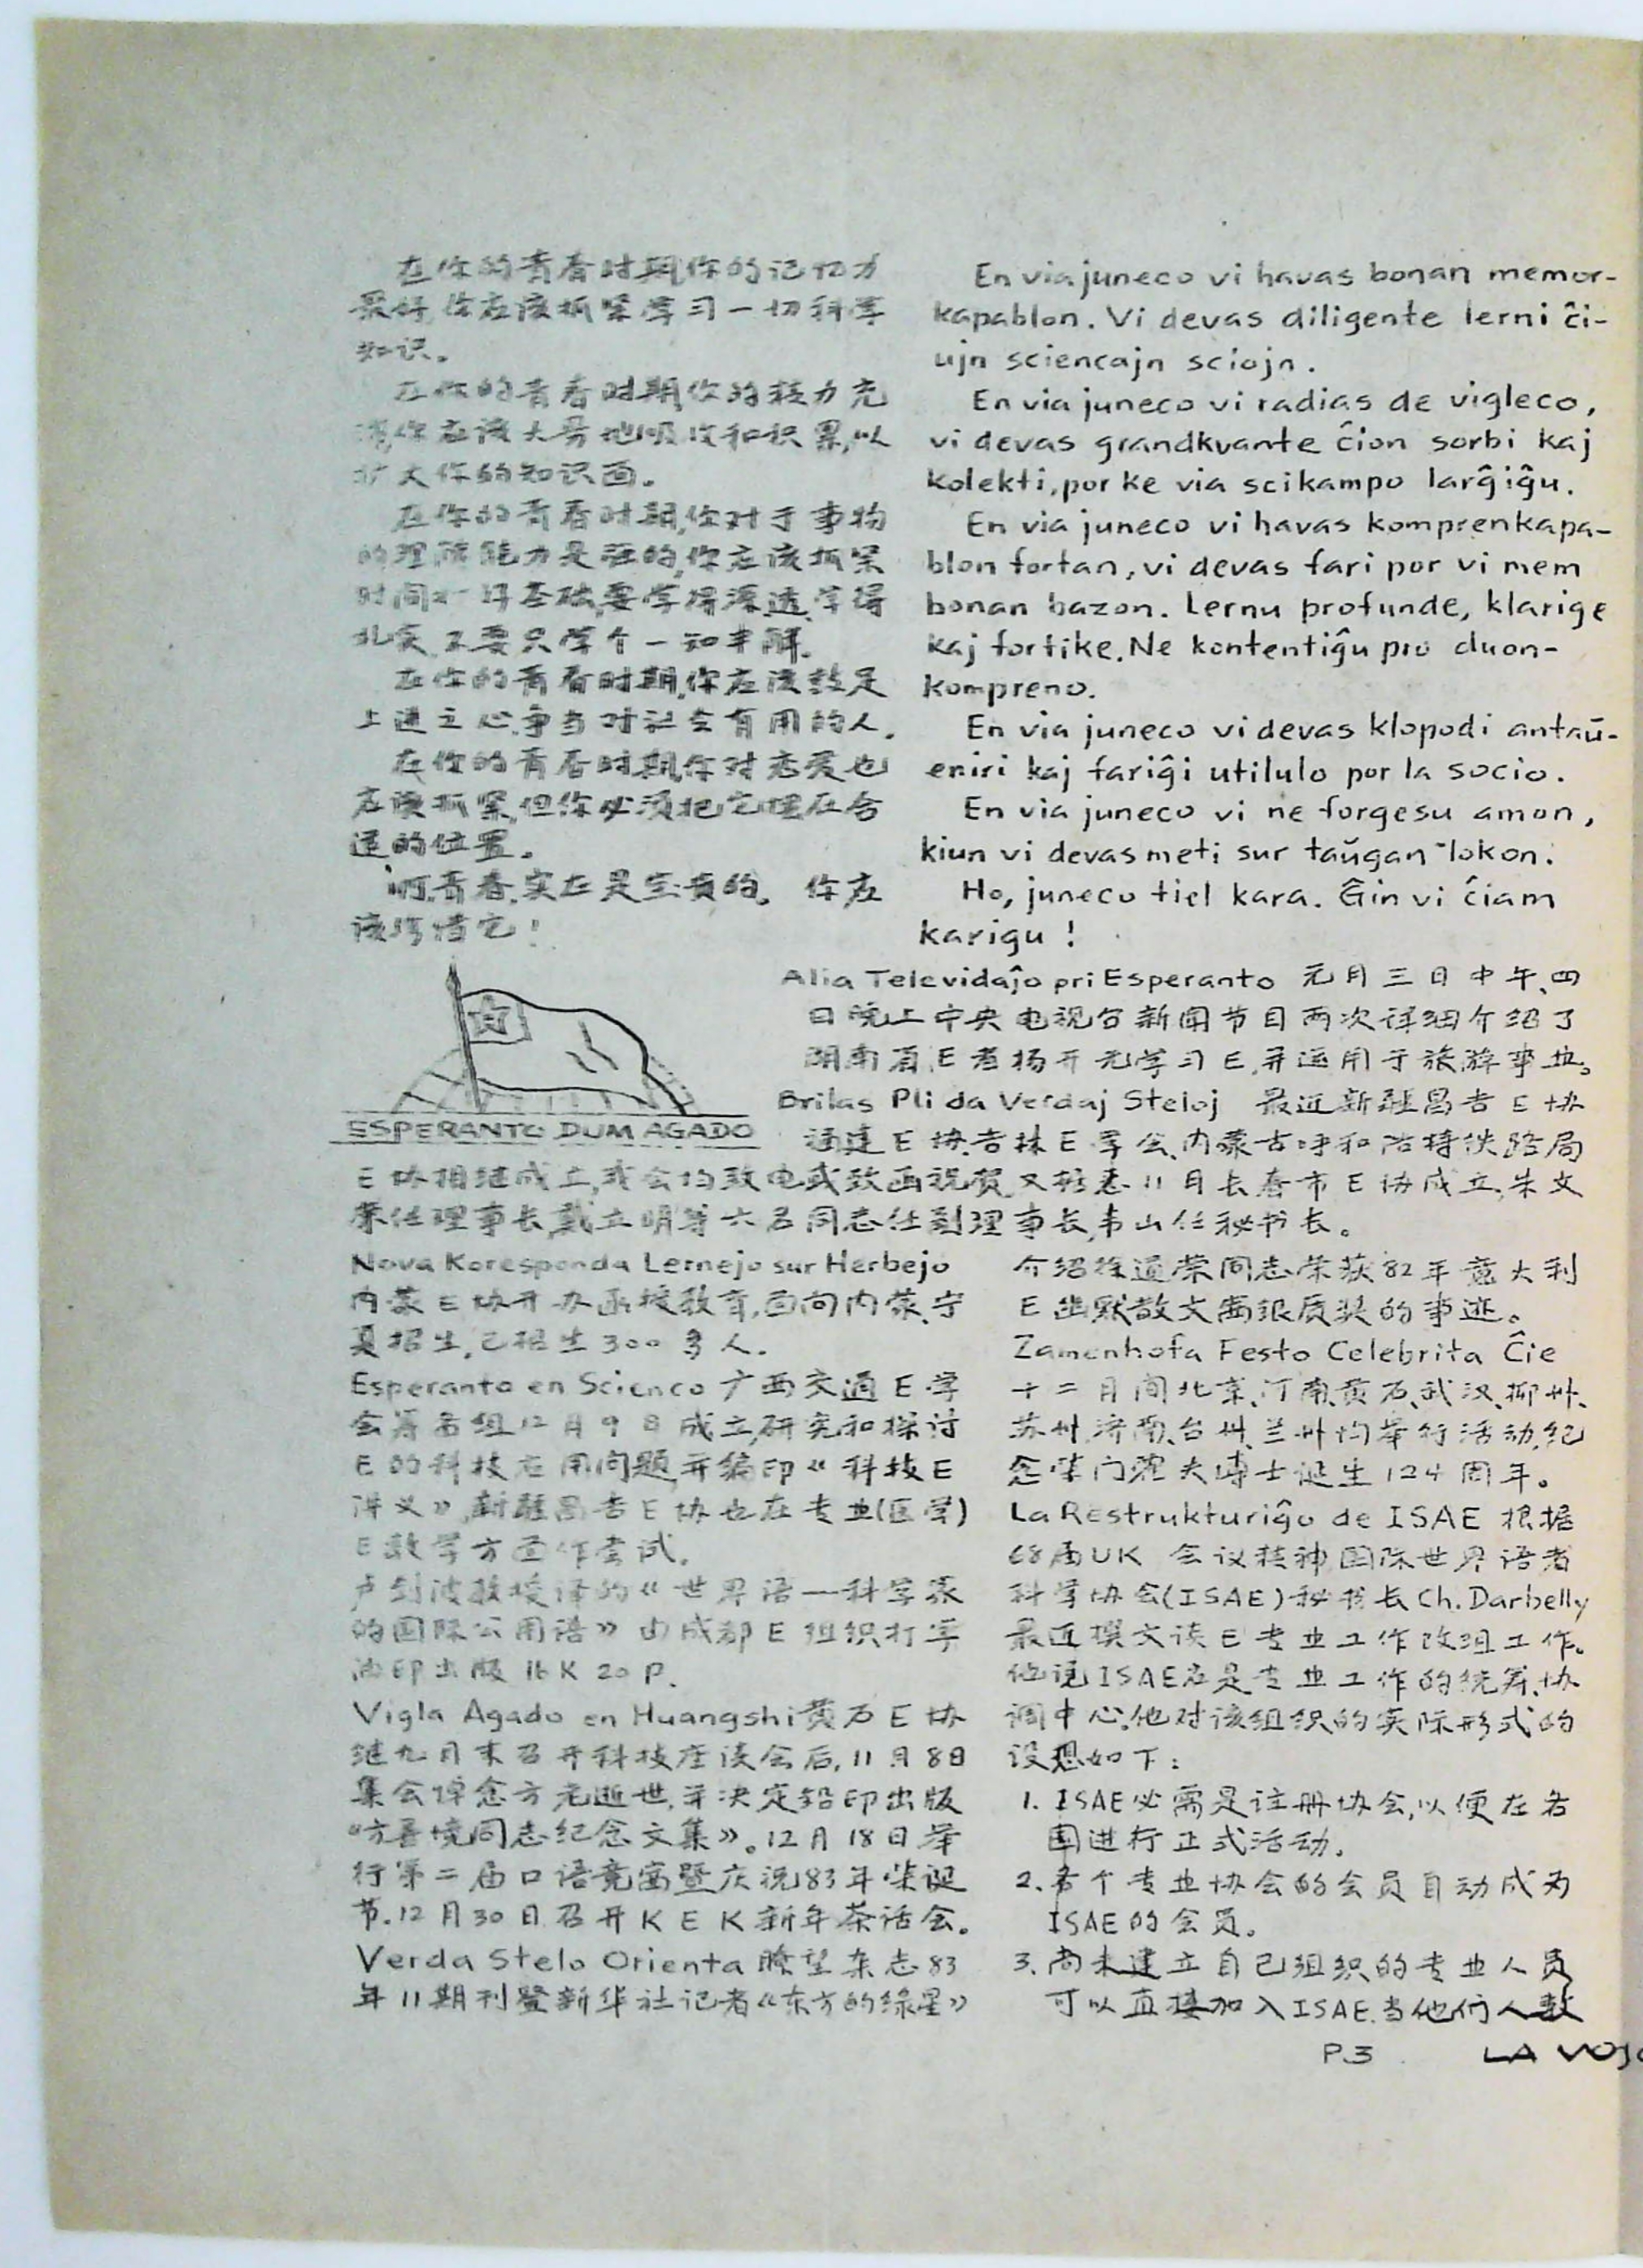 在你的青春时期,你的记忆力
最好,你应该抓紧学习一切科学
知识。
在你的青春时期,你的精力充
沛,你应该大量地吸收和积累,以
扩大你的知识面。
在你的青春时期,你对于事物
的理解能力是强的,你应该抓紧
时间打好基础,要学得深透、学得
扎实,不要只学个一知半解。
在你的青春时期,你应该鼓足
上进之心,争当对社会有用的人。
在你的青春时期,你对恋爱也
应该抓紧,但你必须把它摆在合
适的位置。
啊,青春,实在是宝贵的。你应
该珍惜它!
En via juneco vi havas bonan memor-
kapablon. Vi devas diligente lerni ĉi-
ujn sciencajn sciojn.
En via juneco vi radias de vigleco,
vi devas grandkvante ĉion sorbi kaj
kolekti, por ke via scikampo larĝiĝu.
En via juneco vi havas komprenkapa-
blon fortan, vi devas fari por vi mem
bonan bazon. Lernu profunde, klarige
kaj fortike. Ne kontentiĝu pro duon-
kompreno.
En via juneco vi devas klopodi antaŭ-
eniri kaj fariĝi utilulo por la socio.
En via juneco vi ne forgesu amon,
kiun vi devas meti sur taŭgan lokon.
Ho, juneco tiel kara. Ĝin vi ĉiam
karigu!
ESPERANTO DUM AGADO
Alia Televidaĵo pri Esperanto 元月三日中午、四
日晚上中央电视台新闻节目两次详细介绍了
湖南省E者扬开光学习E,并运用于旅游事业。
Brilas Pli da Verdaj Steloj 最近新疆昌吉E协
通建E协、吉林E学会、内蒙古呼和浩特铁路局
E协相继成立,我会均致电或致函祝贺,又括悉11月长春市E协成立,朱文
荣任理事长,戴立明等六名同志任副理事长,韦山任秘书长。
Nova Koresponda Lernejo sur Herbejo
内蒙E协开办函授教育,面向内蒙、宁
夏招生,已招生300多人.
Esperanto en Scienco 广西交通E学
会筹备组12月9日成立,研究和探讨
E的科技应用问题,并编印《科技E
讲义》,新疆昌吉E协也在专业(医学)
E教学方面作尝试.
卢剑波教授译的《世界语—科学家
的国际公用语》由成都E组织打字
油印出版 16K 20P.
Vigla Agado en Huangshi 黄石E协
继九月末召开科技座谈会后,11月8日
集会悼念方老逝世,并决定铅印出版
《方善境同志纪念文集》。12月18日举
行第二届口语竞赛暨庆祝83年柴诞
节.12月30日召开KEK新年茶话会。
Verda Stelo Orienta 瞭望杂志83
年11期刊登新华社记者《东方的绿星》
介绍徐道荣同志荣获82年意大利
E幽默散文赛银质奖的事迹。
Zamenhofa Festo Celebrita Ĉie
十二月间北京、河南、黄石、武汉、柳州、
苏州、济南、台州、兰州均举行活动,纪
念柴门霍夫博士诞生124周年。
La Restrukturiĝo de ISAE 根据
68届UK 会议精神,国际世界语者
科学协会(ISAE)秘书长Ch. Darbelly
最近撰文谈E专业工作改组工作。
他说ISAE应是专业工作的统筹、协
调中心。他对该组织的实际形式的
设想如下:
1. ISAE必需是注册协会,以便在各
国进行正式活动.
2.各个专业协会的会员自动成为
ISAE的会员。
3.尚未建立自己组织的专业人员
可以直接加入ISAE.当他们人数
P.3 LA VOJO